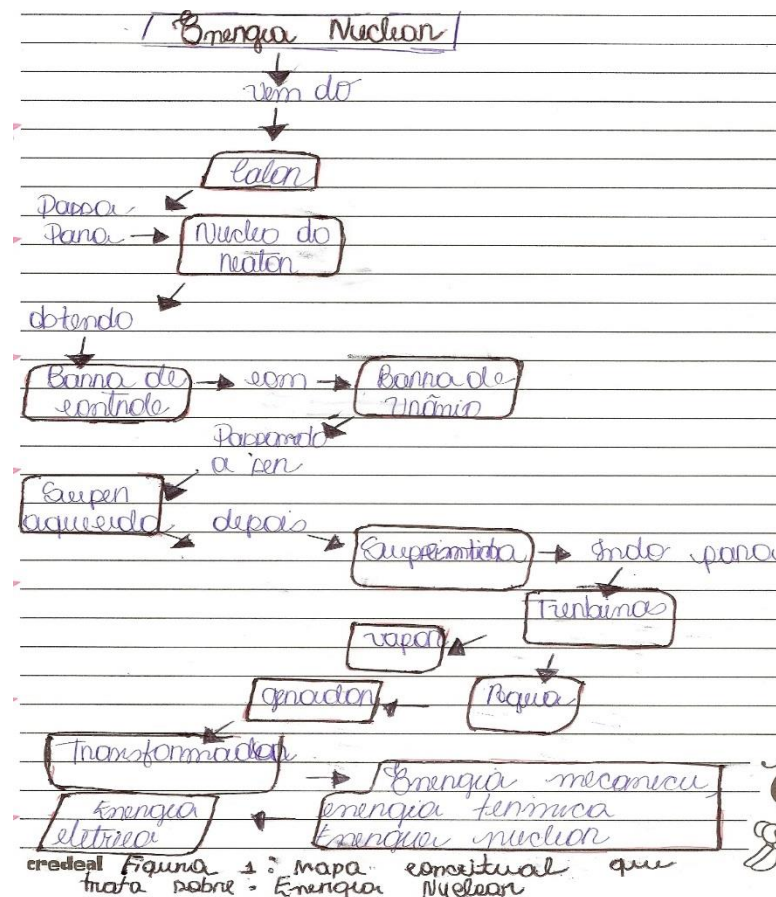 Energia Nuclear
Vem do
Calor
Passa
Para
Nucleo do
reator
obtendo
Barra de
controle
com
Barra de
Urânio
Passando
a ser
Super
aquecida
depois
Indo para
Turbinas
vapor
gerador
Agua
Transformador
Energia mecanica,
energia termica
Energia nuclear
Energia
eletrica
credeal Figura 1: mapa conceitual que
trata sobre: Energia Nuclear